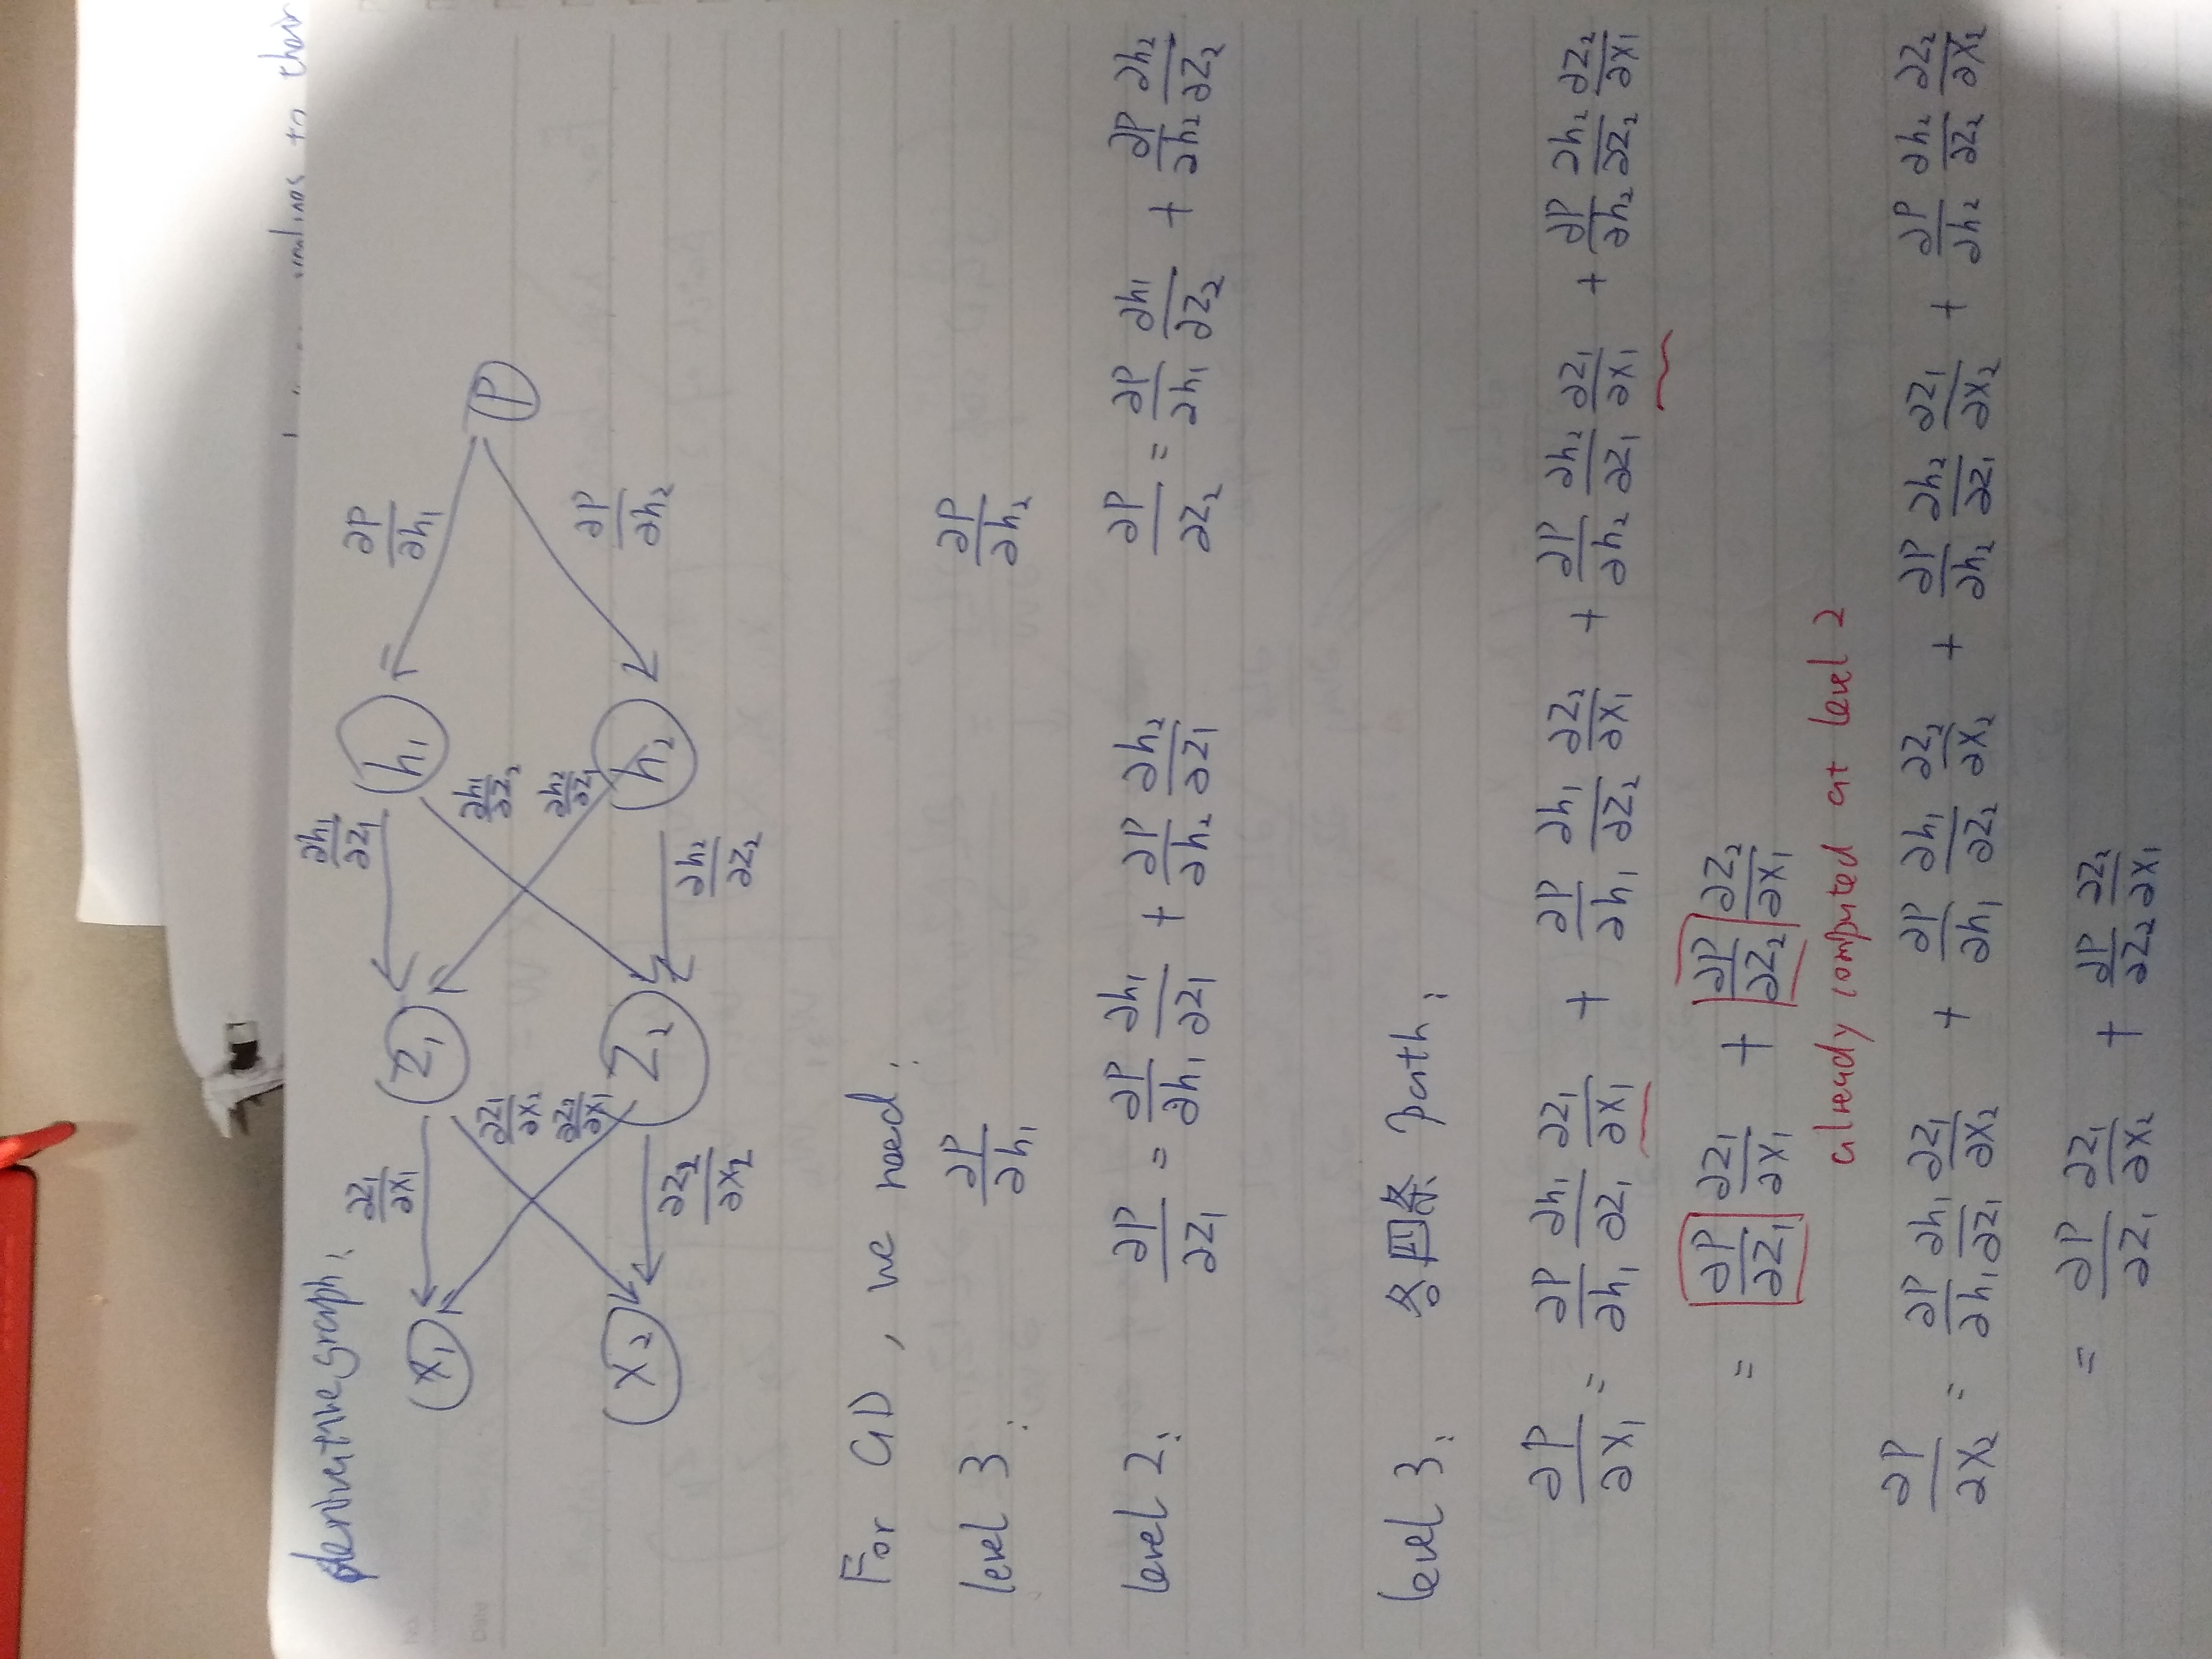 values to their
derivative graph:
∂h₁/∂z₁
∂z₁/∂x₁ ∂p/∂h₁
x₁ z₁ h₁
∂z₁/∂x₂ ∂h₁/∂z₂ p
∂z₂/∂x₁ ∂h₂/∂z₁ ∂p/∂h₂
x₂ z₂ h₂
∂z₂/∂x₂ ∂h₂/∂z₂
For GD, we need:
level 3: ∂p/∂h₁ ∂p/∂h₂
level 2: ∂p/∂z₁ = ∂p/∂h₁ ∂h₁/∂z₁ + ∂p/∂h₂ ∂h₂/∂z₁ ∂p/∂z₂ = ∂p/∂h₁ ∂h₁/∂z₂ + ∂p/∂h₂ ∂h₂/∂z₂
level 3: 各四条 path:
∂p/∂x₁ = ∂p/∂h₁ ∂h₁/∂z₁ ∂z₁/∂x₁ + ∂p/∂h₁ ∂h₁/∂z₂ ∂z₂/∂x₁ + ∂p/∂h₂ ∂h₂/∂z₁ ∂z₁/∂x₁ + ∂p/∂h₂ ∂h₂/∂z₂ ∂z₂/∂x₁
= ∂p/∂z₁ ∂z₁/∂x₁ + ∂p/∂z₂ ∂z₂/∂x₁
already computed at level 2
∂p/∂x₂ = ∂p/∂h₁ ∂h₁/∂z₁ ∂z₁/∂x₂ + ∂p/∂h₁ ∂h₁/∂z₂ ∂z₂/∂x₂ + ∂p/∂h₂ ∂h₂/∂z₁ ∂z₁/∂x₂ + ∂p/∂h₂ ∂h₂/∂z₂ ∂z₂/∂x₂
= ∂p/∂z₁ ∂z₁/∂x₂ + ∂p/∂z₂ ∂z₂/∂x₁